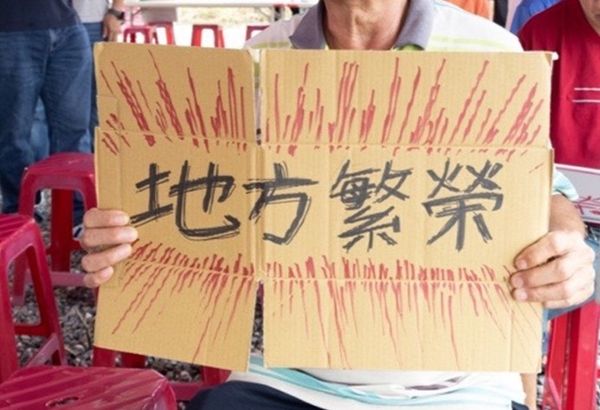 地方繁榮